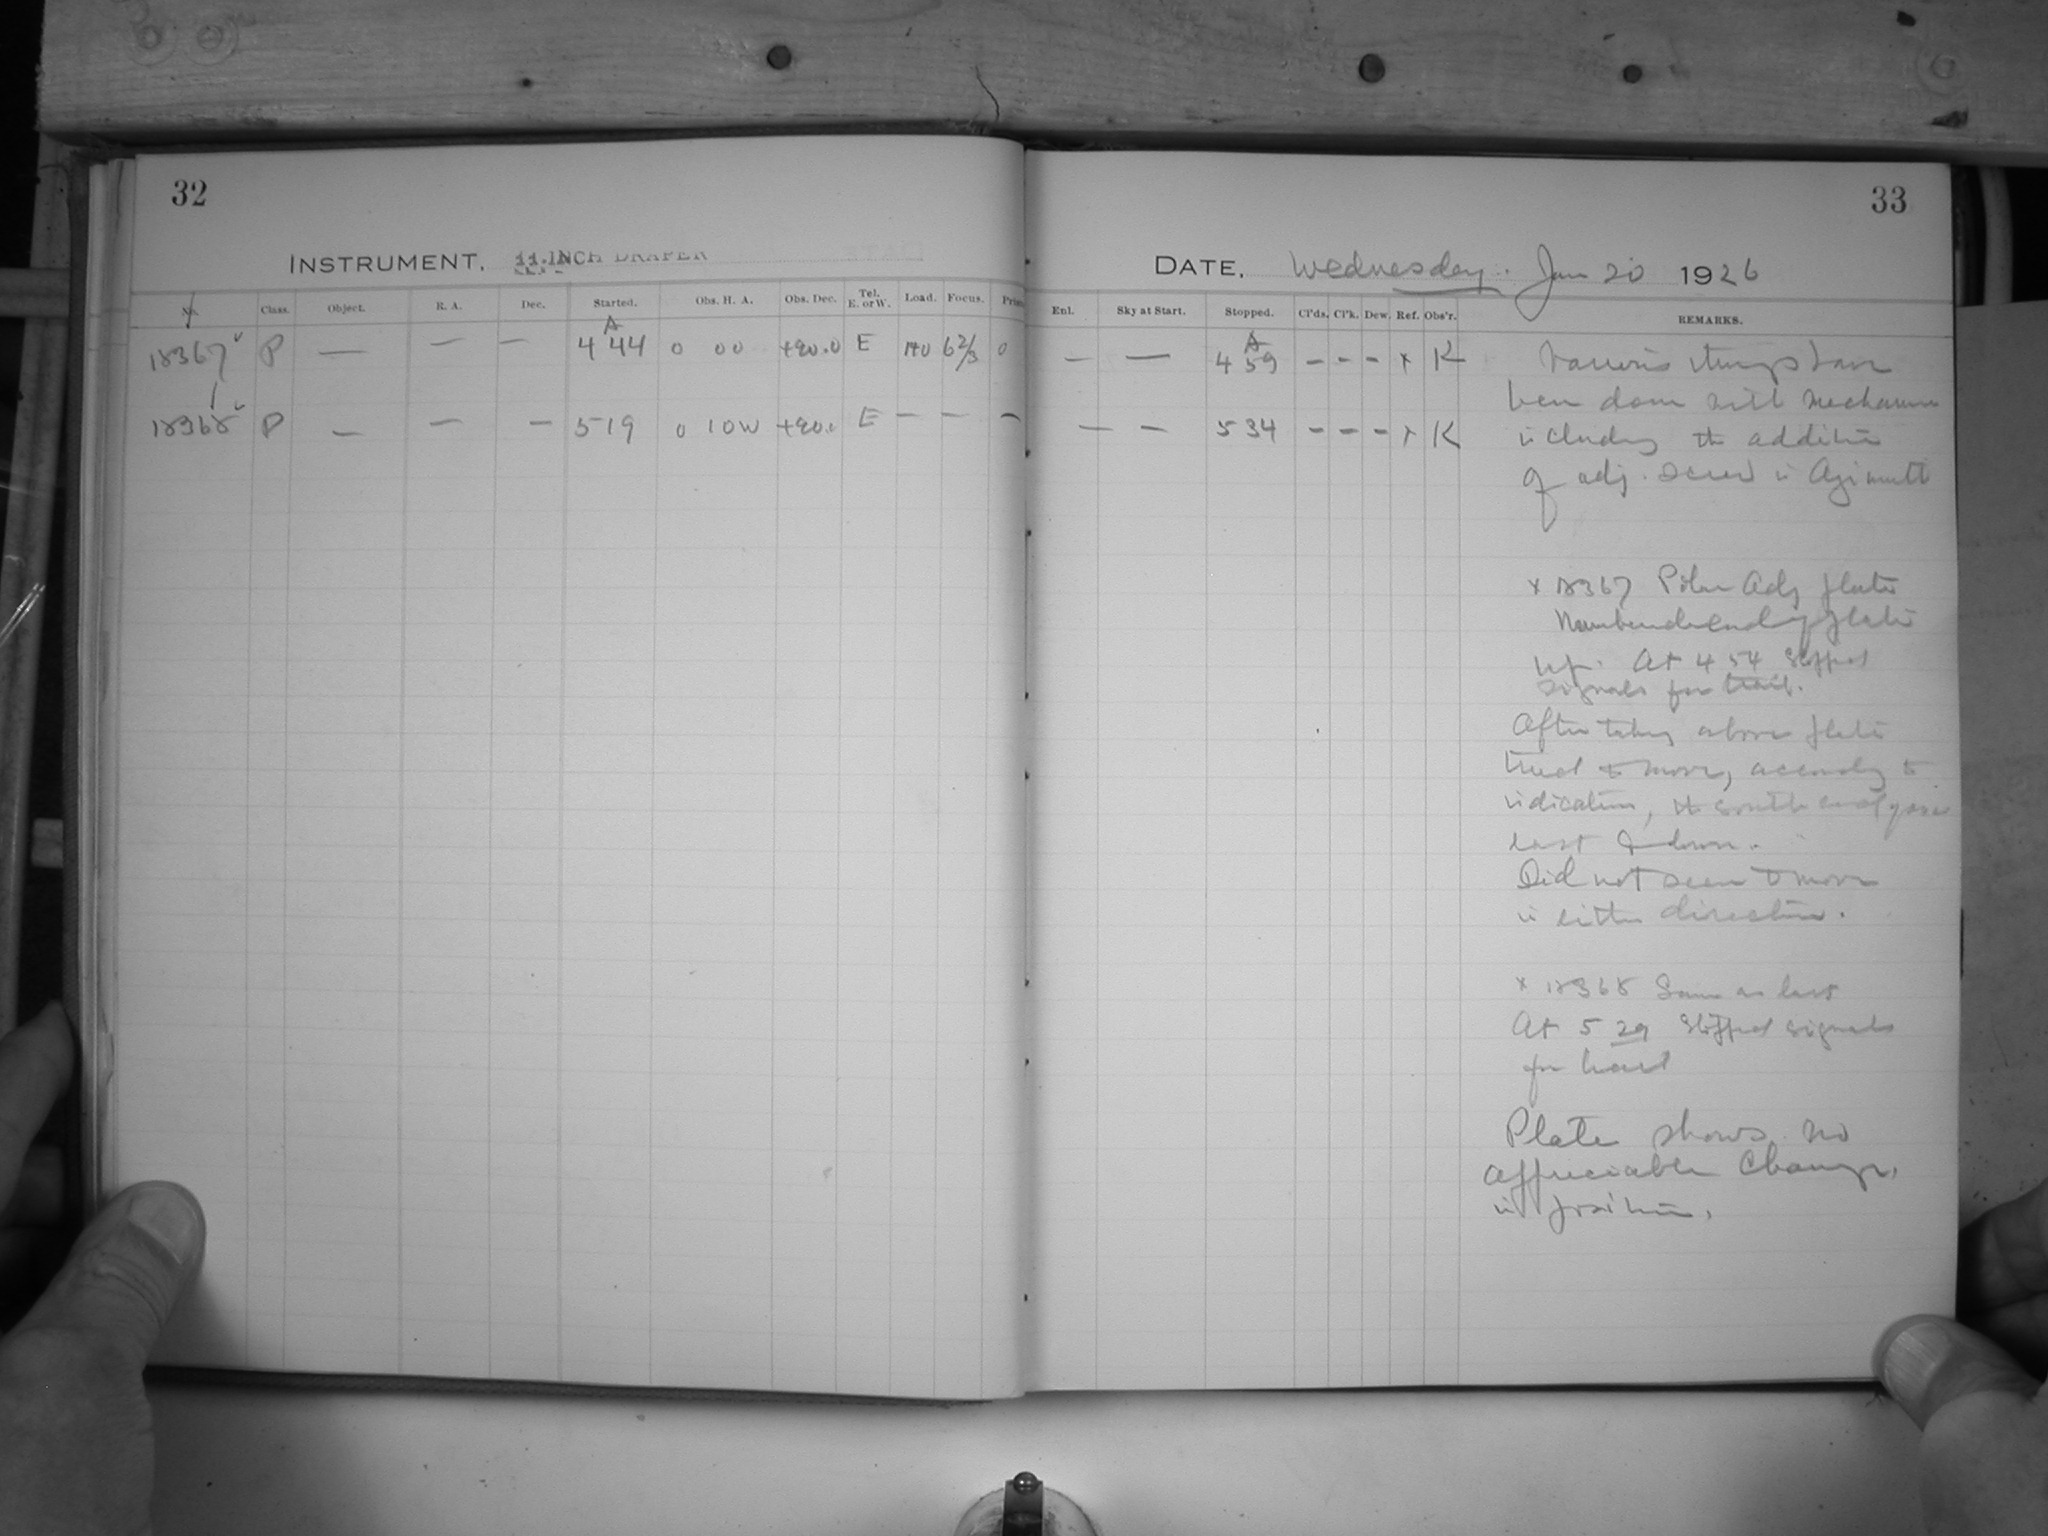 32
INSTRUMENT, 11-INCH DRAPER
No. Class. Object. R. A. Dec. Started. Obs. H. A. Obs. Dec. Tel. E. or W. Load. Focus. Prism
18367 P — — — A 4 44 0 00 +90.0 E 140 6 2/3 0
18368 P — — — 5 19 0 10 W +90.0 E — — —
33
DATE, Wednesday. Jan 20 1926
Enl. Sky at Start. Stopped. Cl'ds. Cl'k. Dew. Ref. Obs'r. REMARKS.
— — A 4 59 - - - x K
— — 5 34 - - - x K
Various things have
been done with mechanism
including the addition
of adj. screw in Azimuth
x 18367 Polar Adj plate
Numbered end of plate
up. At 4 54 stopped
signals for trail.
After taking above plate
tried to move, according to
indication, the south end
east & down.
Did not seem to move
in either direction.
x 18368 Same as last
At 5 29 stopped signals
for trail
Plate shows no
appreciable change
in position.